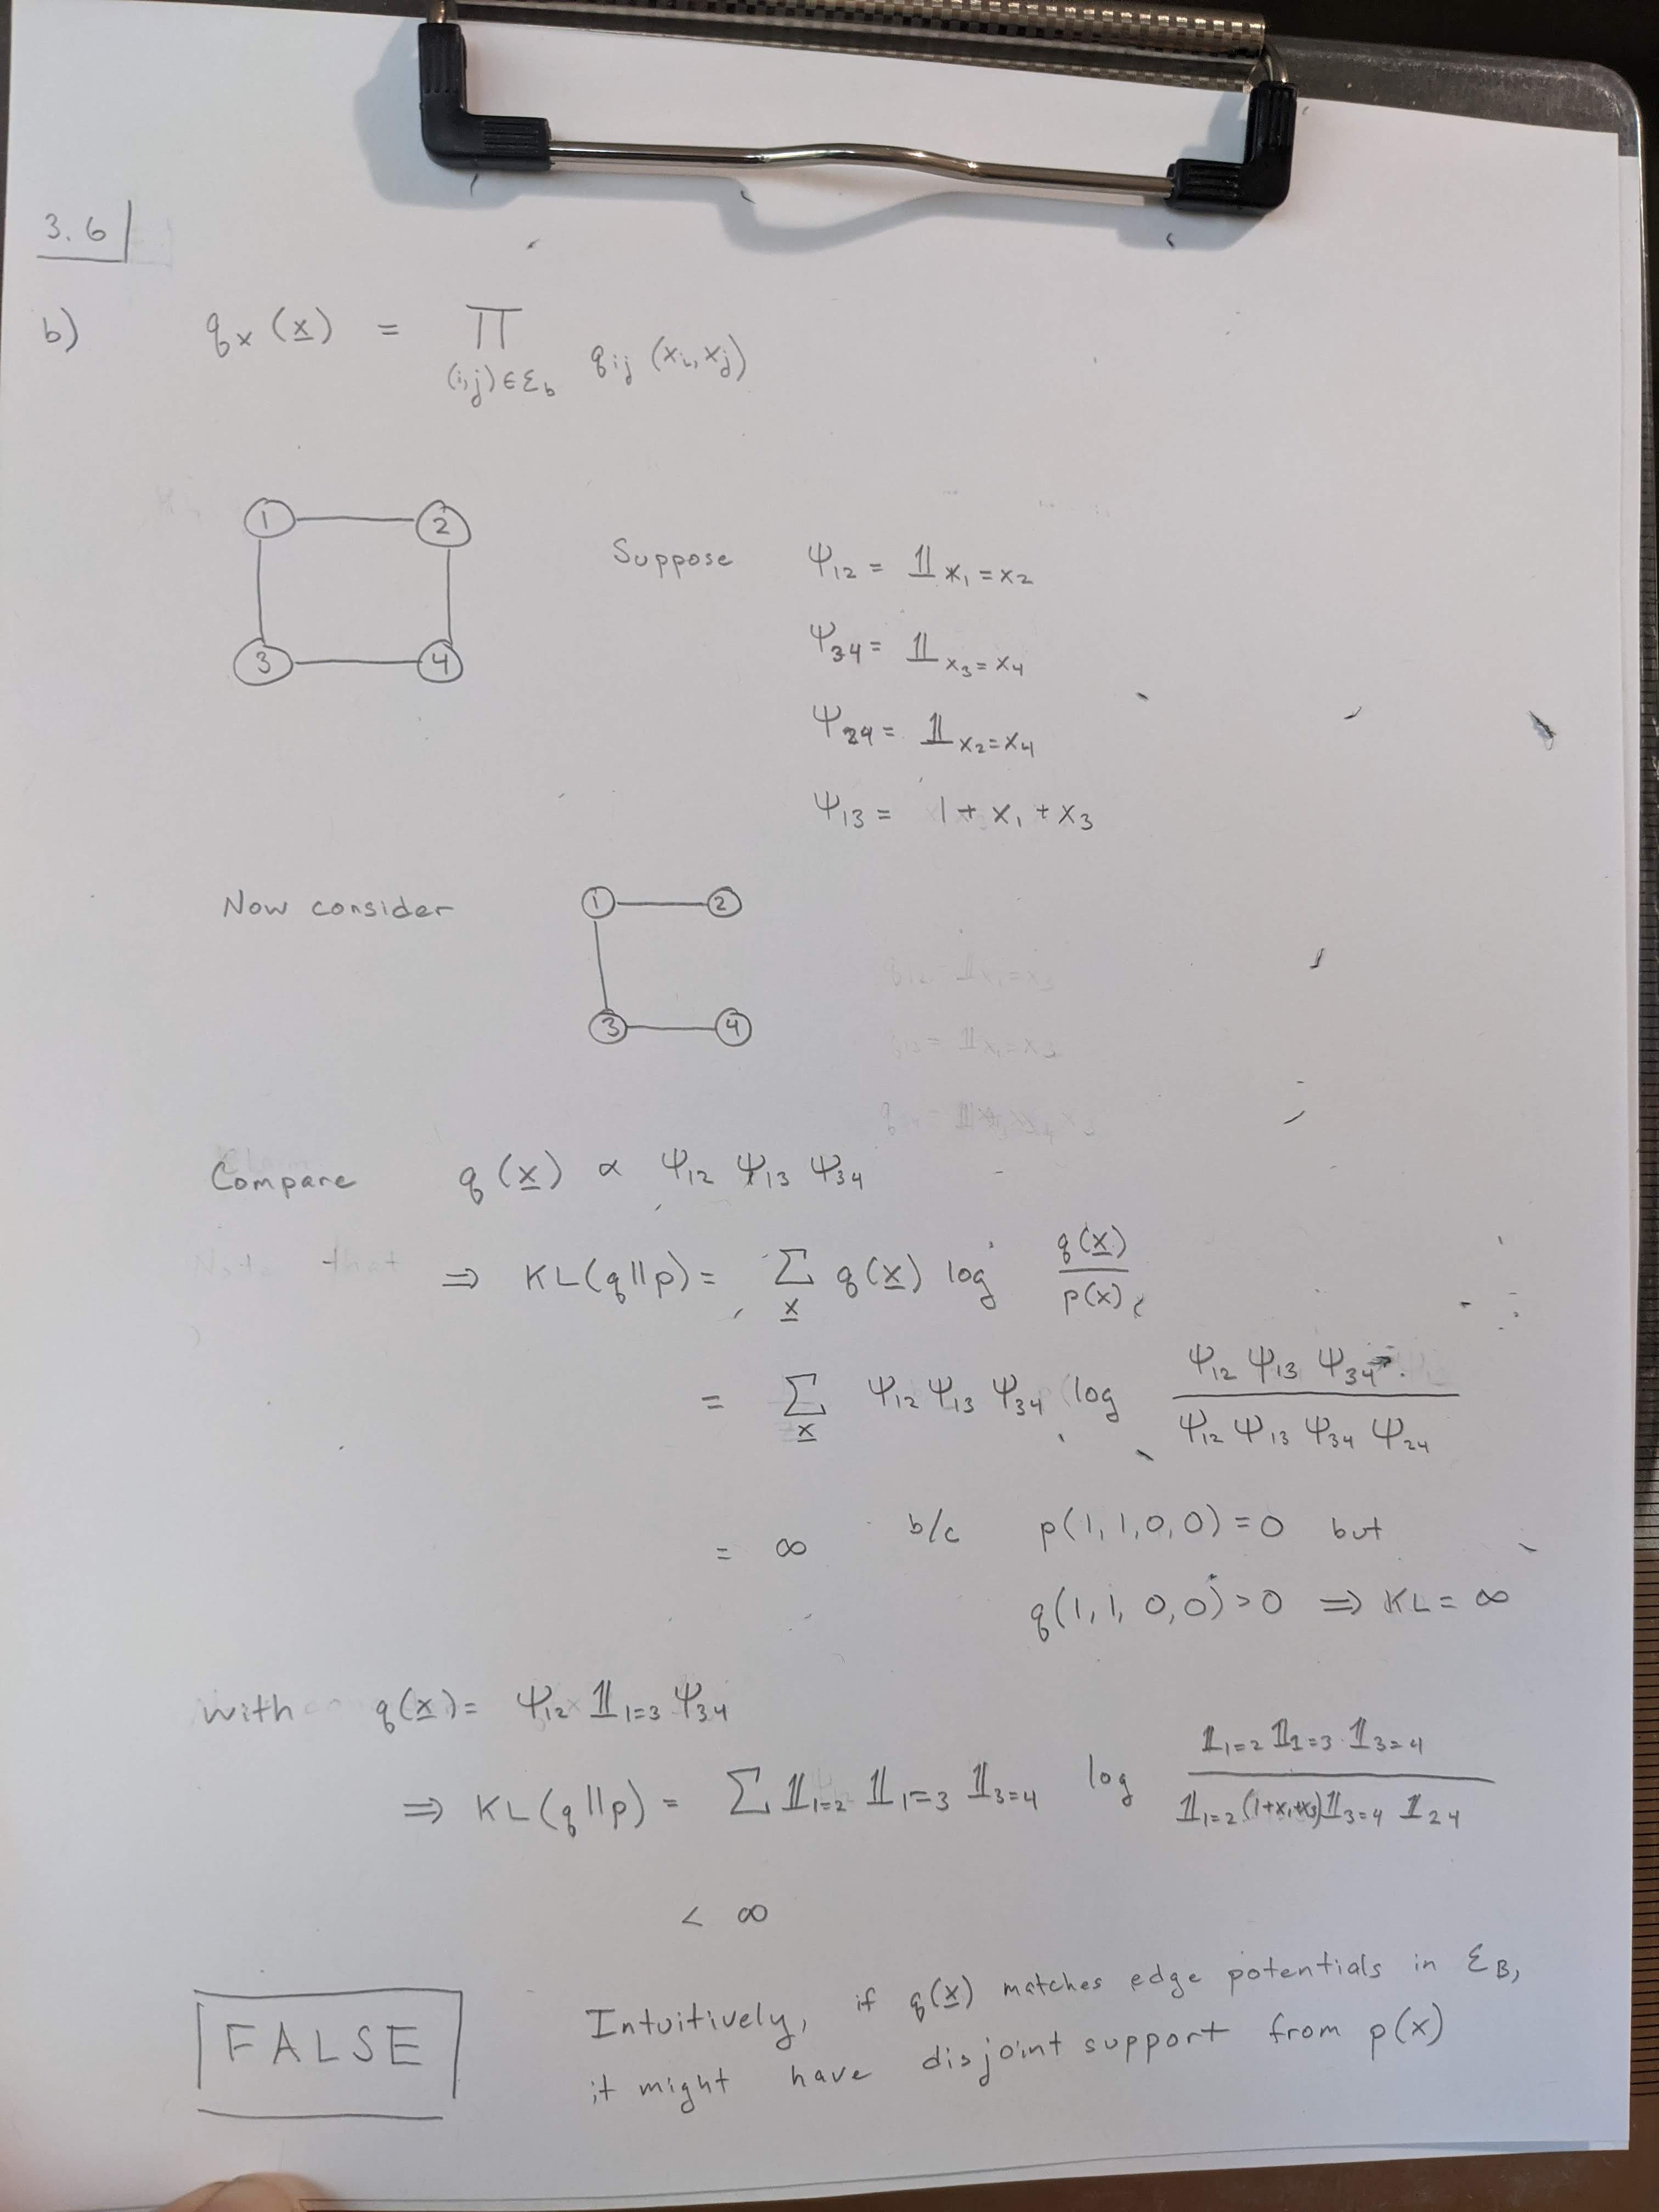 3.6
b) q_x (x) = Π_{(i,j)∈ℰ_b} q_ij (x_i, x_j)
1 2
3 4
Suppose Ψ_12 = 𝟙_{x_1 = x_2}
Ψ_34 = 𝟙_{x_3 = x_4}
Ψ_24 = 𝟙_{x_2 = x_4}
Ψ_13 = 1 + x_1 + x_3
Now consider
1 2
3 4
Compare q(x) ∝ Ψ_12 Ψ_13 Ψ_34
⇒ KL(q||p) = Σ_x q(x) log q(x) / p(x)
= Σ_x Ψ_12 Ψ_13 Ψ_34 log Ψ_12 Ψ_13 Ψ_34 / Ψ_12 Ψ_13 Ψ_34 Ψ_24
= ∞ b/c p(1,1,0,0) = 0 but
q(1,1,0,0) > 0 ⇒ KL = ∞
with q(x) = Ψ_12 𝟙_{1=3} Ψ_34
⇒ KL(q||p) = Σ 𝟙_{1=2} 𝟙_{1=3} 𝟙_{3=4} log 𝟙_{1=2} 𝟙_{1=3} 𝟙_{3=4} / 𝟙_{1=2} (1+x_1+x_3) 𝟙_{3=4} 𝟙_{24}
< ∞
FALSE
Intuitively, if q(x) matches edge potentials in ℰ_B,
it might have disjoint support from p(x)